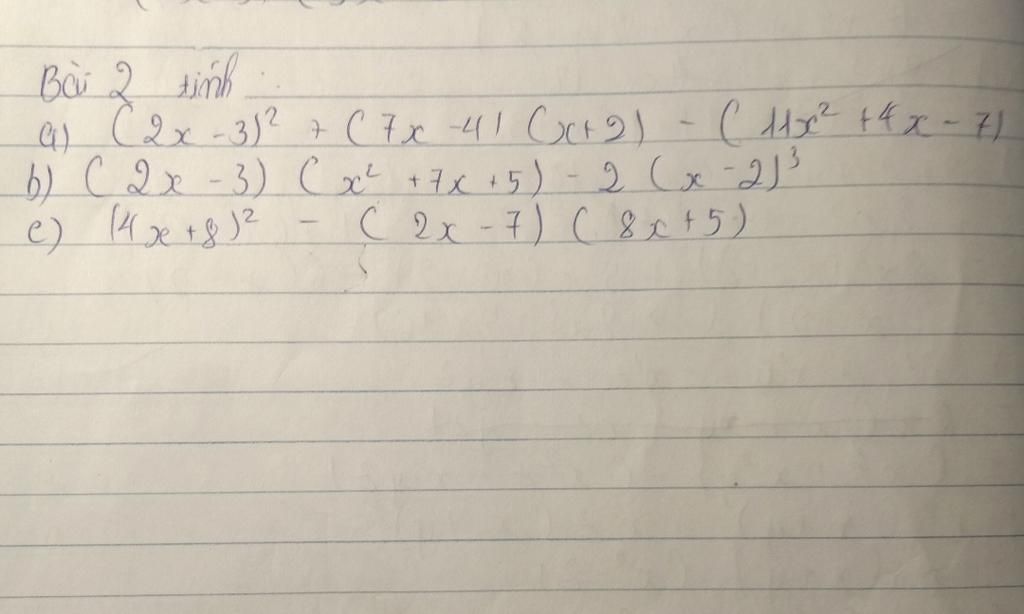 Bài 2 tính
a) (2x - 3)² + (7x - 4) (x + 2) - (11x² + 4x - 7)
b) (2x - 3) (x² + 7x + 5) - 2 (x - 2)³
c) (4x + 8)² - (2x - 7) (8x + 5)